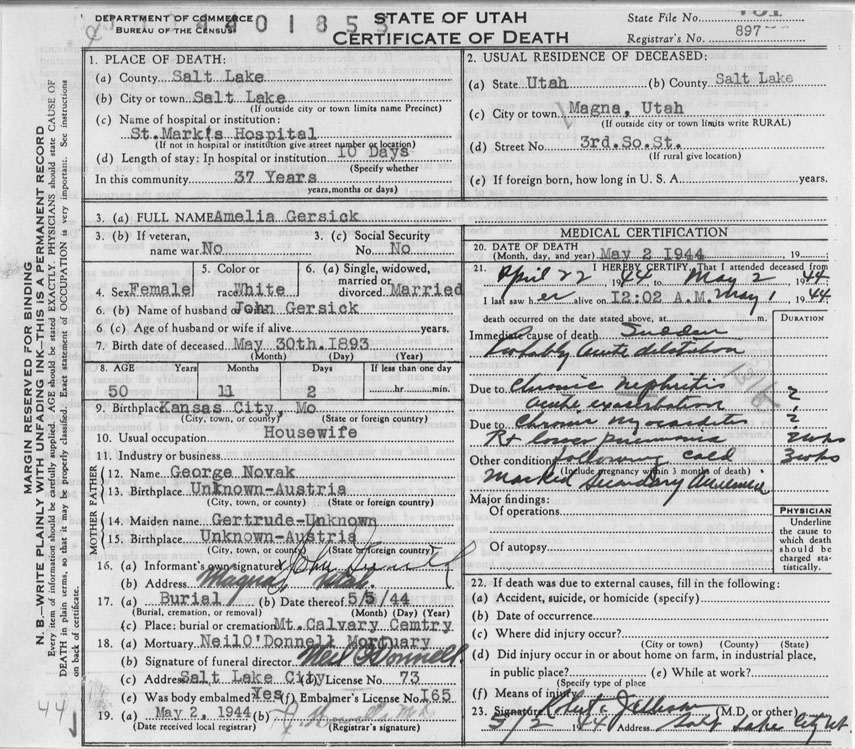 DEPARTMENT OF COMMERCE
BUREAU OF THE CENSUS
4401853
STATE OF UTAH
CERTIFICATE OF DEATH
State File No.
Registrar's No. 897
MARGIN RESERVED FOR BINDING
N. B.—WRITE PLAINLY WITH UNFADING INK—THIS IS A PERMANENT RECORD
Every item of information should be carefully supplied. AGE should be stated EXACTLY. PHYSICIANS should state CAUSE OF
DEATH in plain terms, so that it may be properly classified. Exact statement of OCCUPATION is very important. See instructions
on back of certificate.
44
1. PLACE OF DEATH:
(a) County Salt Lake
(b) City or town Salt Lake
(If outside city or town limits name Precinct)
(c) Name of hospital or institution:
St.Mark's Hospital
(If not in hospital or institution give street number or location)
(d) Length of stay: In hospital or institution 10 Days
(Specify whether
In this community 37 Years
years, months or days)
2. USUAL RESIDENCE OF DECEASED:
(a) State Utah (b) County Salt Lake
(c) City or town Magna, Utah
(If outside city or town limits write RURAL)
(d) Street No 3rd.So.St.
(If rural give location)
(e) If foreign born, how long in U. S. A. years.
3. (a) FULL NAME Amelia Gersick
3. (b) If veteran, name war No
3. (c) Social Security No. No
4. Sex Female
5. Color or race White
6. (a) Single, widowed, married or divorced Married
6. (b) Name of husband or John Gersick
6. (c) Age of husband or wife if alive years.
7. Birth date of deceased May 30th.1893
(Month) (Day) (Year)
8. AGE Years Months Days If less than one day
50 11 2 hr. min.
9. Birthplace Kansas City, Mo
(City, town, or county) (State or foreign country)
10. Usual occupation Housewife
11. Industry or business
FATHER
12. Name George Novak
13. Birthplace Unknown-Austria
(City, town, or county) (State or foreign country)
MOTHER
14. Maiden name Gertrude-Unknown
15. Birthplace Unknown-Austria
(City, town, or county) (State or foreign country)
16. (a) Informant's own signature John
(b) Address Magna, Utah.
17. (a) Burial (b) Date thereof 5/5/44
(Burial, cremation, or removal) (Month) (Day) (Year)
(c) Place: burial or cremation Mt.Calvary Cemtry
18. (a) Mortuary Neil O'Donnell Mortuary
(b) Signature of funeral director Neil O'Donnell
(c) Address Salt Lake City (d) License No. 73
(e) Was body embalmed Yes (f) Embalmer's License No. I65
19. (a) May 2, 1944 (b)
(Date received local registrar) (Registrar's signature)
MEDICAL CERTIFICATION
20. DATE OF DEATH
(Month, day, and year) May 2 1944 19
21. I HEREBY CERTIFY, That I attended deceased from
April 22 1944 to May 2 1944
I last saw h er alive on I2:02 A.M. May 1 1944
death occurred on the date stated above, at m.
DURATION
Immediate cause of death Sudden
Probably acute dilatation
Due to Chronic nephritis ?
acute exacerbation
Due to Chronic myocarditis ?
Rt lower pneumonia 2 wks
Other condition following cold 3 wks
(Include pregnancy within 3 months of death)
Marked Secondary Anemia
Major findings:
Of operations
Of autopsy
PHYSICIAN
Underline
the cause to
which death
should be
charged sta-
tistically.
22. If death was due to external causes, fill in the following:
(a) Accident, suicide, or homicide (specify)
(b) Date of occurrence
(c) Where did injury occur?
(City or town) (County) (State)
(d) Did injury occur in or about home on farm, in industrial place,
in public place? (e) While at work?
(Specify type of place
(f) Means of injury
23. Signature Robert (M.D. or other)
5/2 1944 Address Salt Lake City Ut.